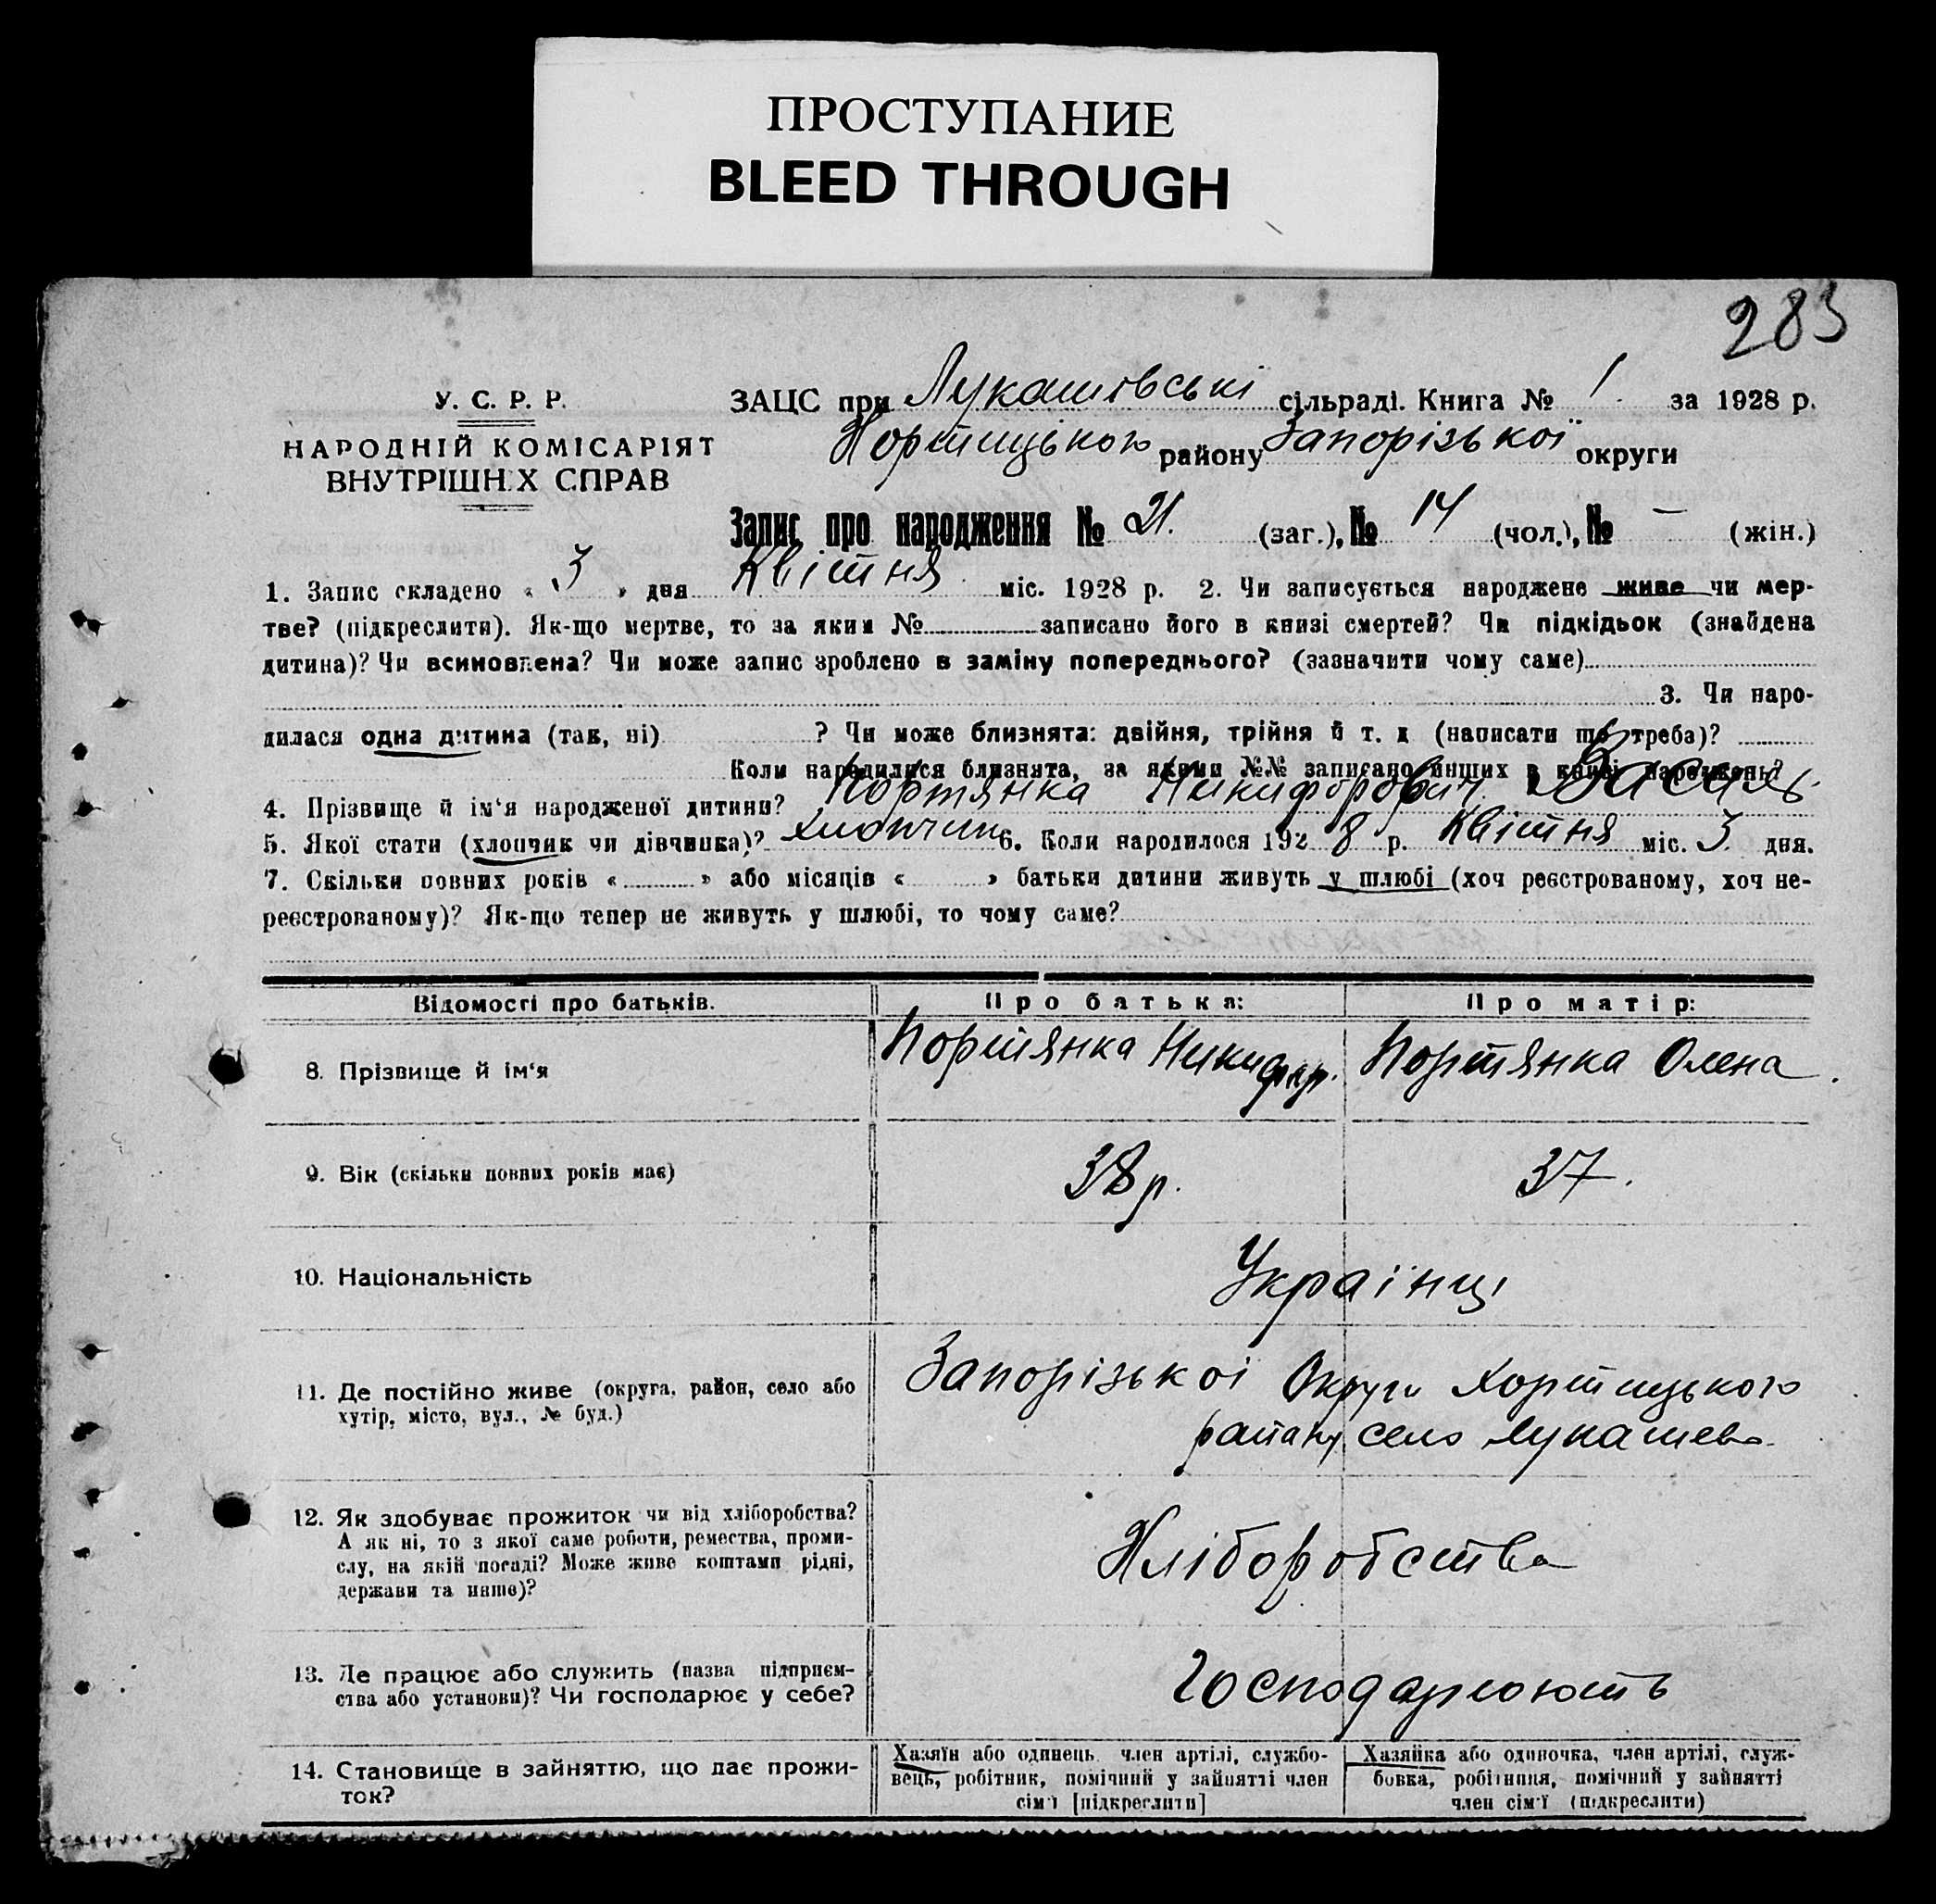 ПРОСТУПАНИЕ
BLEED THROUGH
283
У. С. Р. Р.
НАРОДНІЙ КОМІСАРІЯТ
ВНУТРІШН.Х СПРАВ
ЗАЦС при Лукашівські сільраді. Книга № 1. за 1928 р.
Хортицького району Запорізької округи
Запис про народження № 21. (заг.), № 14 (чол.), № — (жін.)
1. Запис складено « 3 » дня Квітня міс. 1928 р. 2. Чи записується народжене живе чи мер-
тве? (підкреслити). Як-що мертве, то за яким № записано його в книзі смертей? Чи підкідьок (знайдена
дитина)? Чи всиновлена? Чи може запис зроблено в заміну попереднього? (зазначити чому саме)
3. Чи наро-
дилася одна дитина (так, ні) ? Чи може близнята: двійня, трійня й т. д (написати що треба)?
Коли народилися близнята, за якими №№ записано инших в книзі народжень?
4. Прізвище й ім‘я народженої дитини? Портянка Никифорович Василь.
5. Якої стати (хлопчик чи дівчинка)? Хлопчик 6. Коли народилося 1928 р. Квітня міс. 3. дня.
7. Скільки повних років « » або місяців « » батьки дитини живуть у шлюбі (хоч реєстрованому, хоч не-
реєстрованому)? Як-що тепер не живуть у шлюбі, то чому саме?
Відомості про батьків. Про батька: Про матір:
8. Прізвище й ім‘я Портянка Никифор. Портянка Олена.
9. Вік (скільки повних років має) 38 р. 37.
10. Національність Українці
11. Де постійно живе (округа, район, село або
хутір, місто, вул., № буд.)
Запорізькоі Округи Хортицького
району село Лукашево.
12. Як здобуває прожиток чи від хліборобства?
А як ні, то з якої саме роботи, ремества, проми-
слу, на якій посаді? Може живе коштами рідні,
держави та инше)?
Хліборобства
13. Де працює або служить (назва підприєм-
ства або установи)? Чи господарює у себе?
Господарюють
14. Становище в зайняттю, що дає прожи-
ток?
Хазяїн або одинець член артілі, службо-
вець, робітник, помічний у зайнятті член
сім‘ї [підкреслити]
Хазяйка або одиночка, член артілі, служ-
бовка, робітниця, помічний у зайнятті
член сім‘ї (підкреслити)